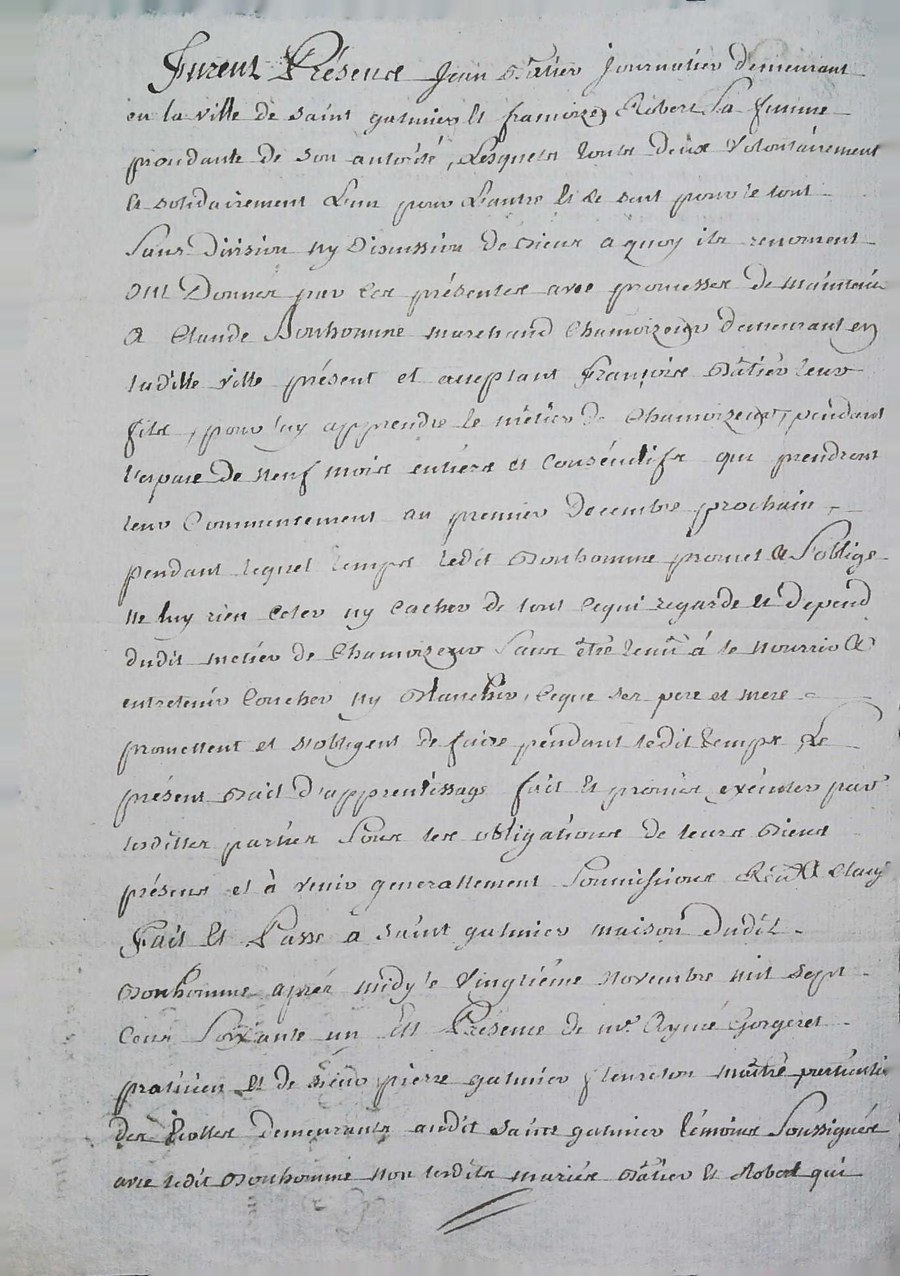 Furent Présens Jean Bâtier Journalier demeurant
en la ville de Saint galmier et françoize Robert Sa femme
procédante de son autorité, Lesquels touts deux Volontairement
et solidairement L'un pour L'autre et le seul pour le tout
Sans Division ny Discussion de biens a quoy ils renoncent
ont Donnes par ces présentes avec promesses de maintenir
a Claude Bonhomme marchand Chamoizeur demeurant en
laditte ville présent et acceptant François Bâtier leur
fils, pour luy apprendre le métier de Chamoizeur, pendant
l'espace de neuf mois entiers et Consécutifs qui prendront
leur Commencement au premier Decembre prochain,
pendant lequel temps ledit Bonhomme promet et S'oblige
ne luy rien celer ny Cacher de tout cequi regarde et depend
dudit metier de Chamoizeur Sans être tenu á le nourrir et
entretenir Coucher ny blanchir, ceque ses pere et mere
promettent et s'obligent de faire pendant ledit temps Le
présent bail d'apprentissage fait et promis exécuter par
lesdittes parties Sous les obligations de leurs biens
présens et à venir generallement Soumissions
Fait et Passé a saint galmier maison dudit
Bonhomme après midy le Vingtième Novembre mil sept
Cens Soixante un En Présence de mr. Aymé Gorgeret
praticien et de sieur pierre galmier fleureton maître
des Ecolles demeurants audit Saint galmier témoins Soussignés
avec ledit Bonhomme non lesdits mariés Bâtier et Robert qui